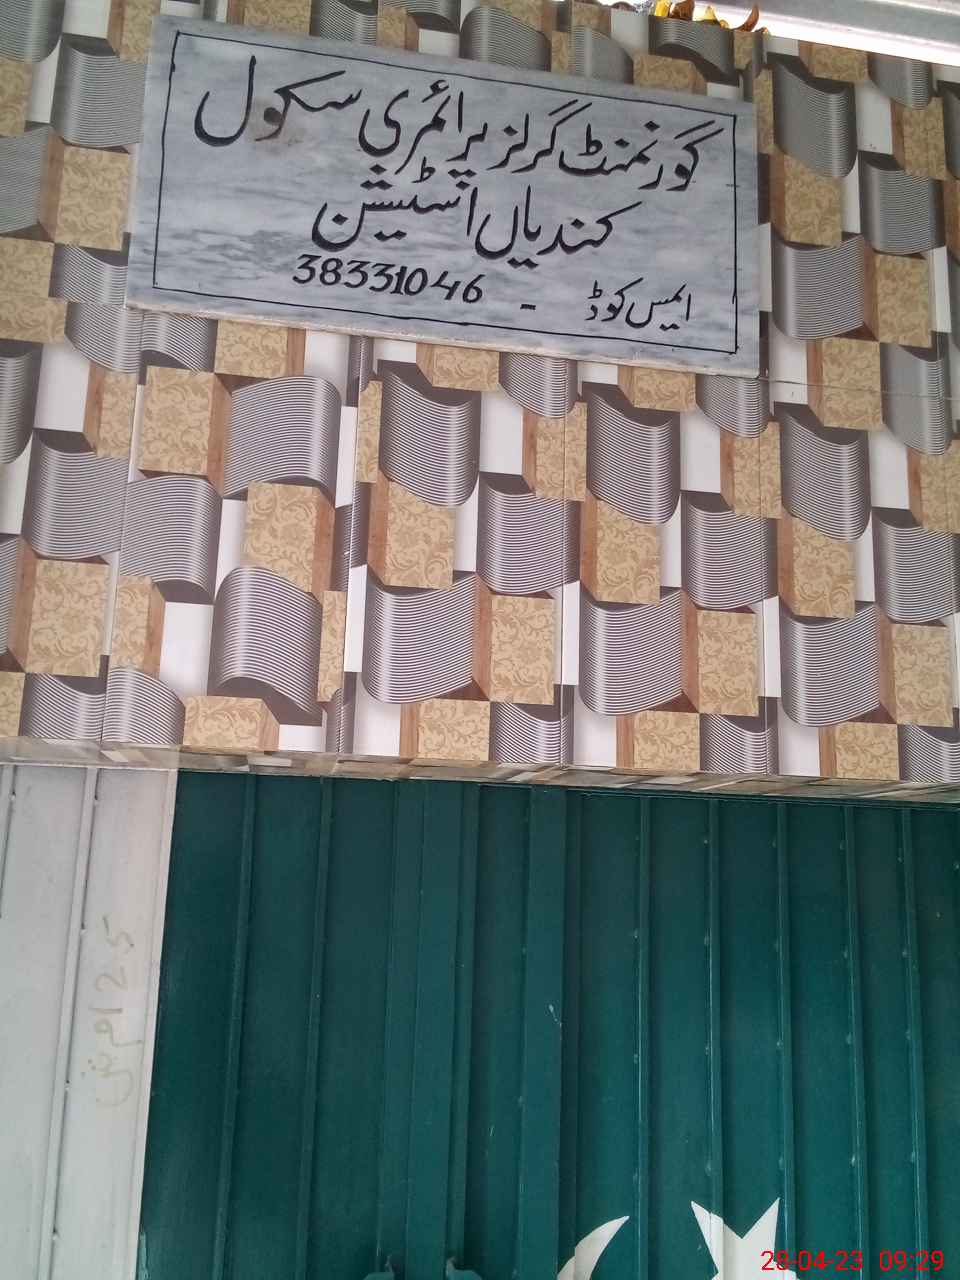 گورنمنٹ گرلز پرائمری سکول
کندیاں اسٹیشن
ایمس کوڈ - 38331046
28-04-23 09:29